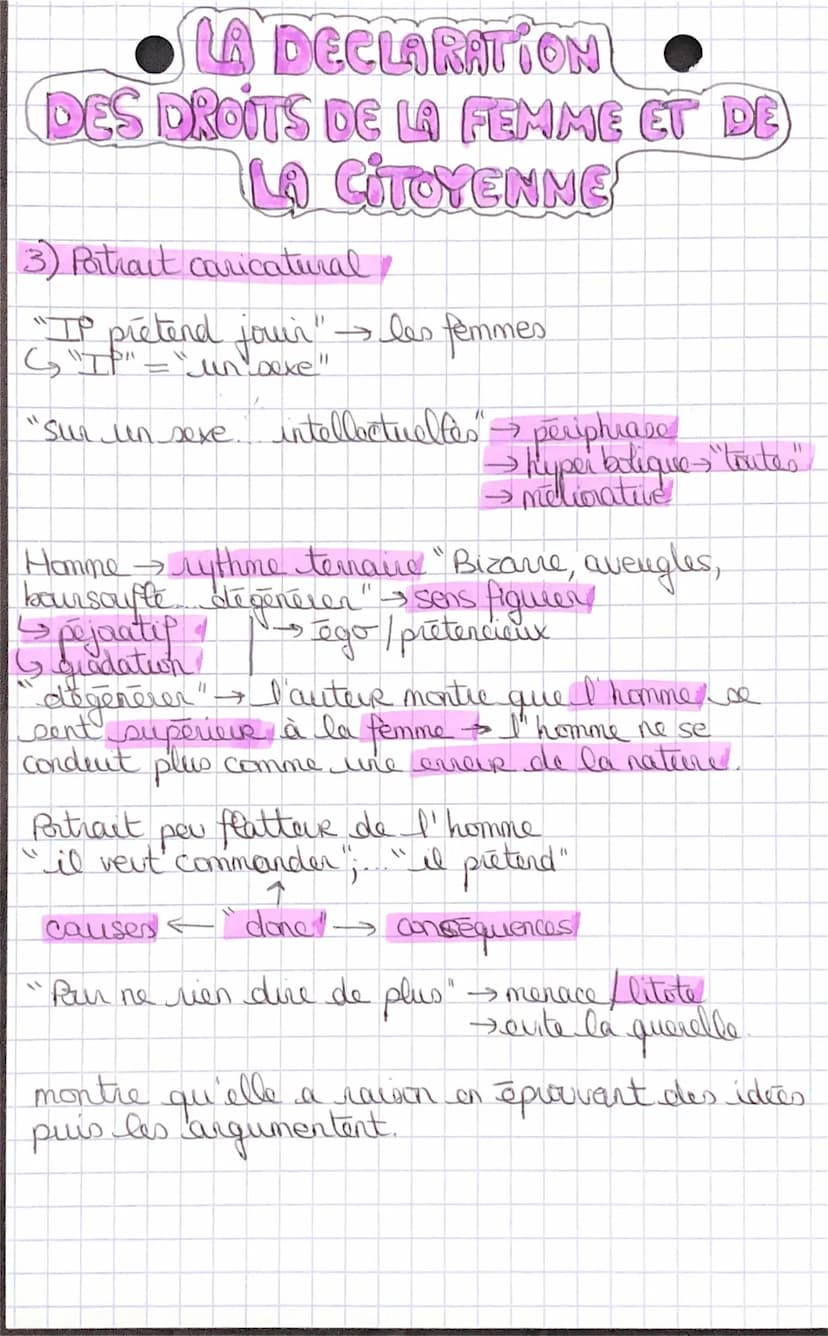 LA DECLARATION
DES DROITS DE LA FEMME ET DE
LA CITOYENNE
3) Portrait caricatural
"Il prétend jouir" → les femmes
↳ "Il" = "un sexe"
"sur un sexe... intellectuelles" → périphrase
→ hyperbolique → "toutes"
→ méliorative
Homme → rythme ternaire "Bizarre, aveugles,
boursoufle... dégénérer" → sens figurer
↳ péjoratif → égo / prétencieux
↳ gradation
"dégénérer" → l'auteur montre que l'homme se
sent supérieur à la femme → l'homme ne se
conduit plus comme une erreur de la nature.
Portrait peu flatteur de l'homme
"il veut commander"; ... "il prétend"
↑
causes ← "donc" → conséquences
"Pour ne rien dire de plus" → menace / litote
→ évite la querelle.
montre qu'elle a raison en éprouvant des idées
puis les argumentent.